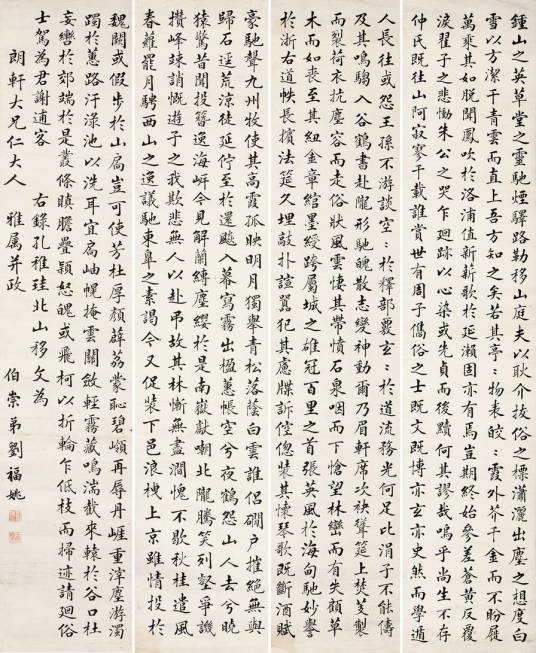 鍾山之英草堂之靈馳煙驛路勒移山庭夫以耿介拔俗之標瀟灑出塵之想度白
雪以方潔干青雲而直上吾方知之矣若其亭〻物表皎〻霞外芥千金而不盼屣
萬乘其如脫聞鳳吹於洛浦值薪歌於延瀨固亦有焉豈期終始參差蒼黃反覆
淚翟子之悲慟朱公之哭乍迴跡以心染或先貞而後黷何其謬哉嗚乎尚生不存
仲氏既往山阿寂寥千載誰賞世有周子儁俗之士既文既博亦玄亦史然而學遁
人長往或怨王孫不游談空〻於釋部覈玄〻於道流務光何足比涓子不能儔
及其鳴騶入谷鶴書赴隴形馳魄散志變神動爾乃眉軒席次袂聳筵上焚芰製
而裂荷衣抗塵容而走俗狀風雲悽其帶憤石泉咽而下愴望林巒而有失顧草
木而如喪至其紐金章綰墨綬跨屬城之雄冠百里之首張英風於海甸馳妙譽
於浙右道帙長擯法筵久埋敲扑諠囂犯其慮牒訴倥傯裝其懷琴歌既斷酒賦
豪馳聲九州牧使其高霞孤映明月獨舉青松落蔭白雲誰侶磵戶摧絕無與
歸石逕荒涼徒延佇至於還飇入幕寫霧出楹蕙帳空兮夜鶴怨山人去兮曉
猿驚昔聞投簪逸海岸今見解蘭縛塵纓於是南嶽獻嘲北隴騰笑列壑爭譏
攢峰竦誚慨遊子之我欺悲無人以赴弔故其林慚無盡澗愧不歇秋桂遣風
春蘿罷月騁西山之逸議馳東皋之素謁今又促裝下邑浪栧上京雖情投於
魏闕或假步於山扃豈可使芳杜厚顏薜荔蒙恥碧嶺再辱丹崖重滓塵游濁
躅於蕙路汙淥池以洗耳宜扃岫幌掩雲關斂輕霧藏鳴湍截來轅於谷口杜
妄轡於郊端於是叢條瞋膽疊穎怒魄或飛柯以折輪乍低枝而掃迹請迴俗
士駕為君謝逋客 右錄孔稚珪北山移文為
朗軒大兄仁大人 雅屬并政
伯崇弟劉福姚